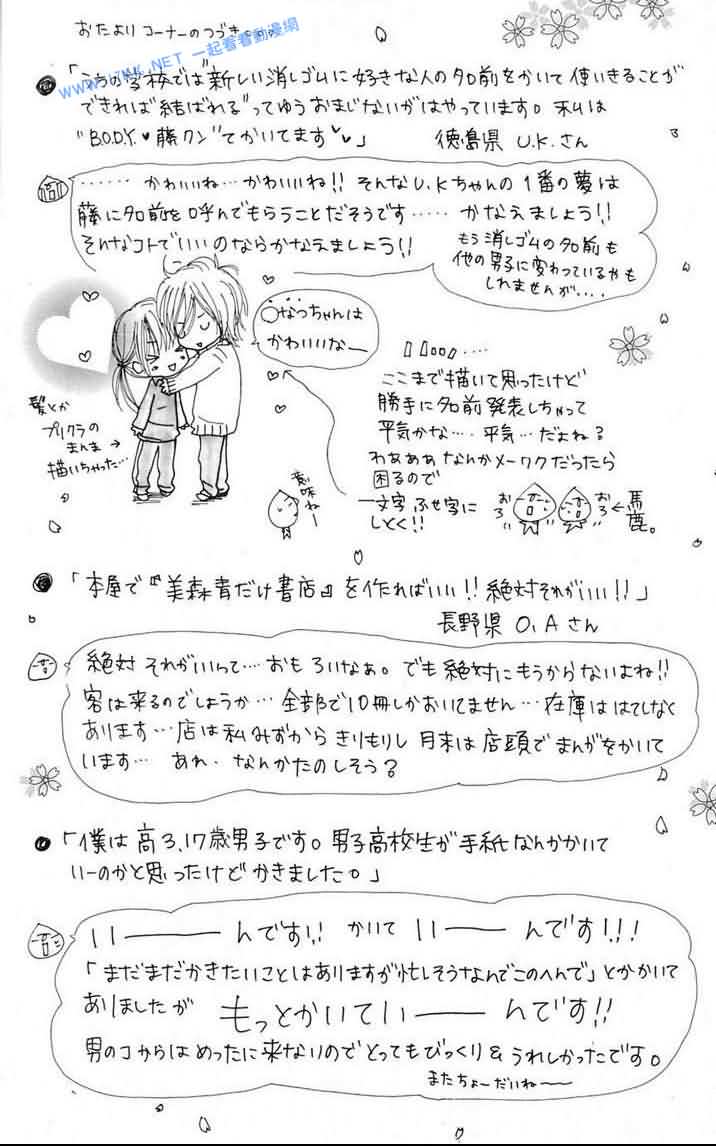 おたよりコーナーのつづき。。。
WWW.17KK.NET 一起看看動漫網
「うちの学校では"新しい消しゴムに好きな人の名前をかいて使いきることが
できれば結ばれる"ってゆうおまじないがはやっています。私は
"B.O.D.Y.♥藤クン"てかいてます♥♥」 徳島県 U.K.さん
…… かわいいね…かわいいね!! そんなU.Kちゃんの1番の夢は
藤に名前を呼んでもらうことだそうです…… かなえましょう!!
そんなコトでいいのならかなえましょう!!
もう消しゴムの名前も
他の男子に変わっているやも
しれませんが....
〇なっちゃんは
かわいいなー
髪とか
プリクラの
まんま →
描いちゃった…
ここまで描いて思ったけど
勝手に名前発表しちゃって
平気かな…. 平気…だよね?
わぁぁぁなんかメーワクだったら
困るので
一文字ふせ字に
しとく!!
意味ねー
おろ
おろ
←馬鹿。
「本屋で『美森青だけ書店』を作ればいい!!絶対それがいい!!」
長野県 O.Aさん
絶対それがいいって…おもろいなぁ。でも絶対にもうからないよね!!
客は来るのでしょうか… 全部で10冊しかおいてません…在庫ははてしなく
あります…店は私みずからきりもりし月末は店頭でまんがをかいて
います… あれ. なんかたのしそう?
「僕は高3、17歳男子です。男子高校生が手紙なんかかいて
いーのかと思ったけどかきました。」
いー――んです!! かいていー――んです!!!
「まだまだかきたいことはありますが忙しそうなんでこのへんで」とかかいて
ありましたが もっとかいていー――んです!!
男のコからはめったに来ないのでとってもびっくり&うれしかったです。
またちょーだいねー